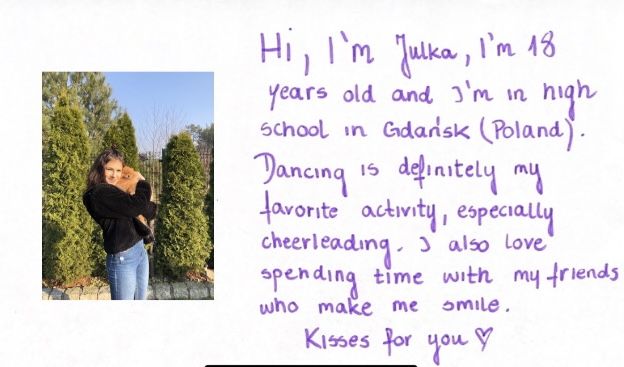 Hi, I'm Julka, I'm 18
years old and I'm in high
school in Gdańsk (Poland).
Dancing is definitely my
favorite activity, especially
cheerleading. I also love
spending time with my friends
who make me smile.
Kisses for you ♡